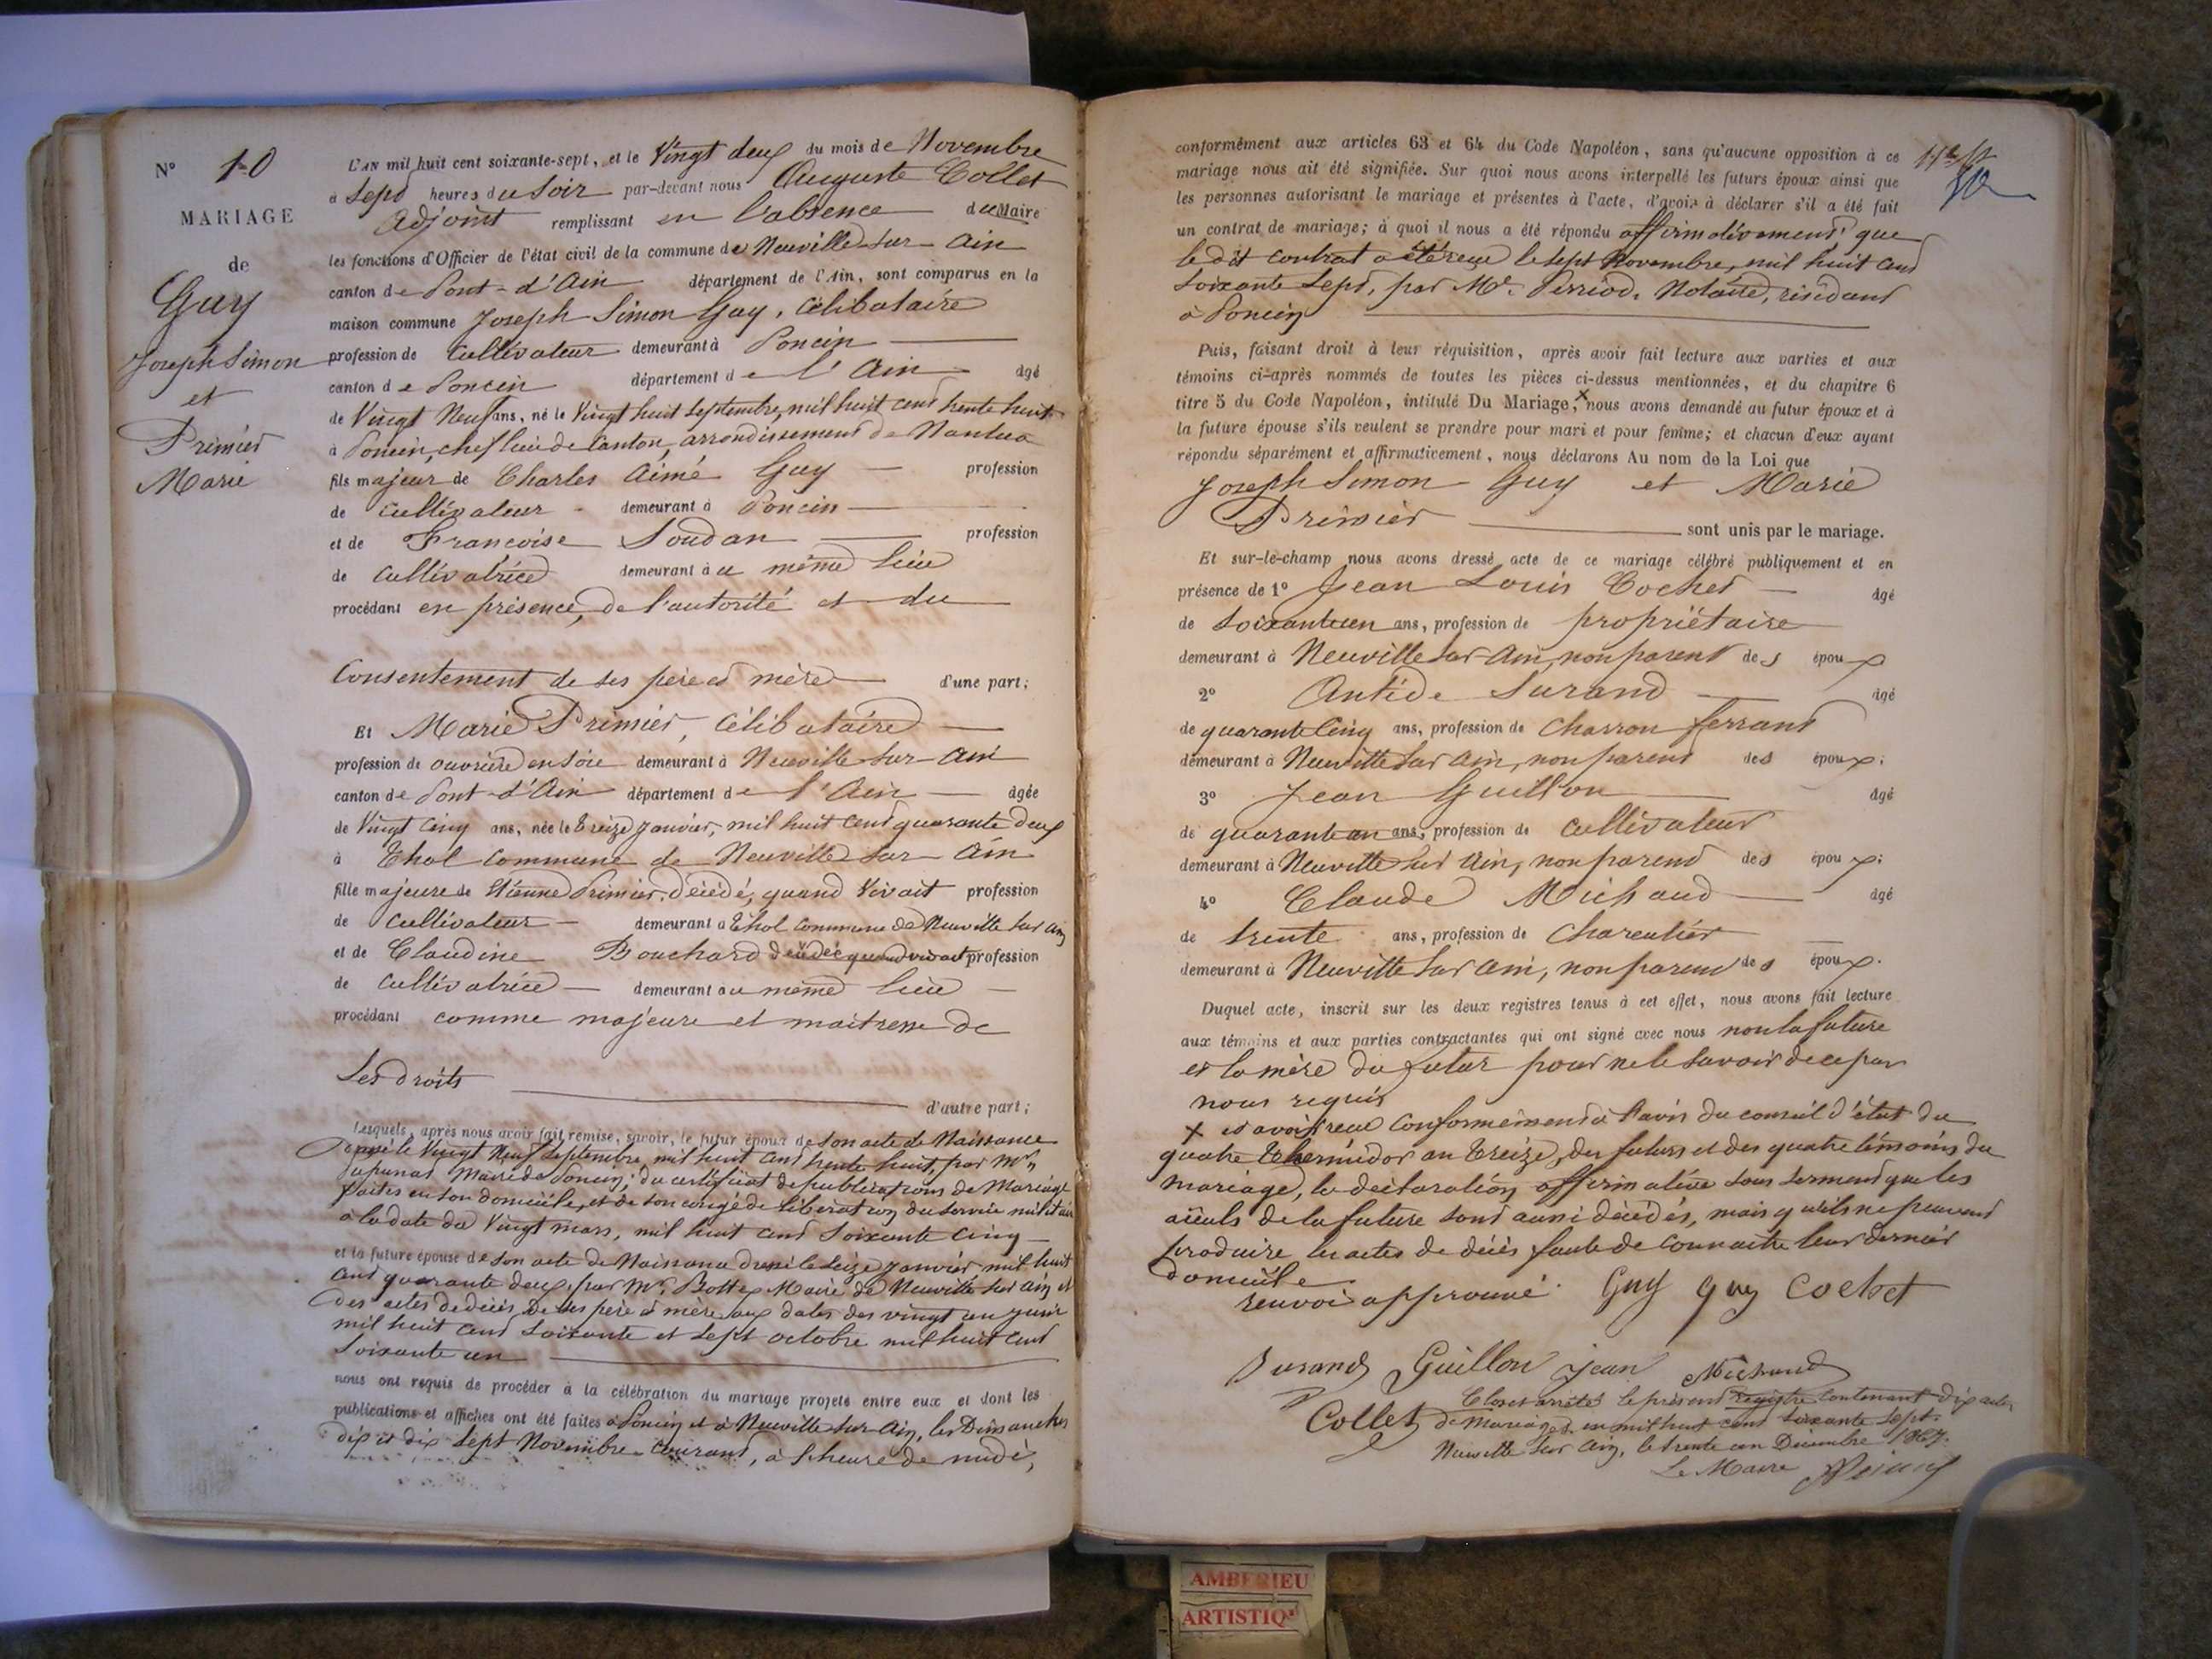 N° 10
MARIAGE
de
Guy
Joseph Simon
et
Primier
Marie
L'AN mil huit cent soixante-sept, et le Vingt deux du mois de Novembre
à Sept heures du Soir par-devant nous Auguste Collet
Adjoint remplissant en l'absence du Maire
les fonctions d'Officier de l'état civil de la commune de Neuville-sur-Ain
canton de Pont-d'Ain département de l'Ain, sont comparus en la
maison commune Joseph Simon Guy, célibataire
profession de Cultivateur demeurant à Poncin
canton de Poncin département de l'Ain âgé
de Vingt Neuf ans, né le Vingt huit Septembre, mil huit cent trente huit
à Poncin, chef lieu de Canton, arrondissement de Nantua
fils majeur de Charles Aimé Guy profession
de cultivateur demeurant à Poncin
et de Francoise Soudan profession
de Cultivatrice demeurant au même lieu
procédant en présence, de l'autorité et du
Consentement de ses père et mère d'une part;
Et Marie Primier, célibataire
profession de ouvrière en soie demeurant à Neuville sur-Ain
canton de Pont-d'Ain département de l'Ain âgée
de Vingt Cinq ans, née le Treize Janvier, mil huit cent quarante deux
à Thol commune de Neuville sur-Ain
fille majeure de Etienne Primier, décédé, quand vivait profession
de Cultivateur demeurant à Thol commune de Neuville sur Ain
et de Claudine Bouchard décédée quand vivait profession
de Cultivatrice demeurant au même lieu
procédant comme majeure et maitresse de
ses droits
d'autre part;
Lesquels, après nous avoir fait remise, savoir, le futur époux de son acte de Naissance
le Vingt Neuf Septembre mil huit cent trente huit, par Mr
Maire de Poncin; du certificat de publications de Mariage
faites en son domicile, et de son congé de libération du service militaire
à la date du Vingt mars, mil huit cent soixante cinq
et la future épouse de son acte de Naissance dressé le seize Janvier mil huit
cent quarante deux, par Mr Maire de Neuville sur Ain et
des actes de décès de ses père et mère aux dates des vingt un juin
mil huit cent soixante et sept octobre mil huit cent
soixante un
nous ont requis de procéder à la célébration du mariage projeté entre eux et dont les
publications et affiches ont été faites à Poncin et à Neuville sur-Ain, les Dimanches
dix et dix sept Novembre courant, à l'heure de midi,
conformément aux articles 63 et 64 du Code Napoléon, sans qu'aucune opposition à ce
mariage nous ait été signifiée. Sur quoi nous avons interpellé les futurs époux ainsi que
les personnes autorisant le mariage et présentes à l'acte, d'avoir à déclarer s'il a été fait
un contrat de mariage; à quoi il nous a été répondu affirmativement que
le dit contrat a été reçu le sept Novembre, mil huit cent
soixante sept, par Me. Perriod, Notaire, résidant
à Poncin
Puis, faisant droit à leur réquisition, après avoir fait lecture aux parties et aux
témoins ci-après nommés de toutes les pièces ci-dessus mentionnées, et du chapitre 6
titre 5 du Code Napoléon, intitulé Du Mariage, x nous avons demandé au futur époux et à
la future épouse s'ils veulent se prendre pour mari et pour femme; et chacun d'eux ayant
répondu séparément et affirmativement, nous déclarons Au nom de la Loi que
Joseph Simon Guy et Marie
Primier sont unis par le mariage.
Et sur-le-champ nous avons dressé acte de ce mariage célébré publiquement et en
présence de 1° Jean Louis Cochet âgé
de Soixante un ans, profession de propriétaire
demeurant à Neuville sur Ain, non parent des époux
2° Antide Durand âgé
de quarante Cinq ans, profession de Charron ferrant
demeurant à Neuville sur Ain, non parent des époux;
3° Jean Guillon âgé
de quarante un ans, profession de cultivateur
demeurant à Neuville sur Ain, non parent des époux;
4° Claude Michaud âgé
de trente ans, profession de Charcutier
demeurant à Neuville sur Ain, non parent des époux.
Duquel acte, inscrit sur les deux registres tenus à cet effet, nous avons fait lecture
aux témoins et aux parties contractantes qui ont signé avec nous non la future
et la mère du futur pour ne le savoir de ce par
nous requis
x et avoir reçu conformément à l'avis du conseil d'état du
quatre Thermidor an Treize, des futurs et des quatre témoins du
mariage, la déclaration affirmative sous serment que les
aïeuls de la future sont aussi décédés, mais qu'ils ne peuvent
produire les actes de décès faute de connaitre leur dernier
domicile
renvoi approuvé. Guy Guy Cochet
Durand Guillon Jean Michaud
Collet
Clos et arrêté le présent registre contenant dix actes
de Mariages en mil huit cent soixante sept.
Neuville sur Ain, le trente un Décembre 1867.
Le Maire
AMBERIEU
ARTISTIQ